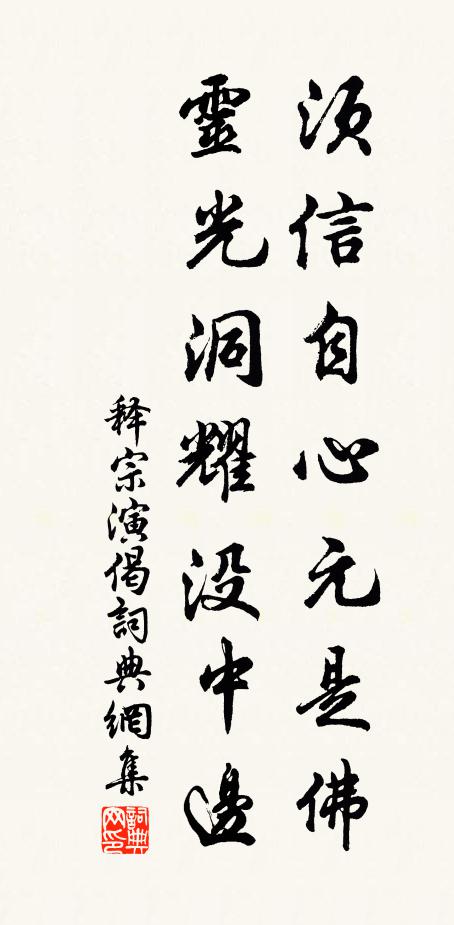 须信自心元是佛
靈光洞耀没中邊
释宗演偈詞典網集
詞典网印